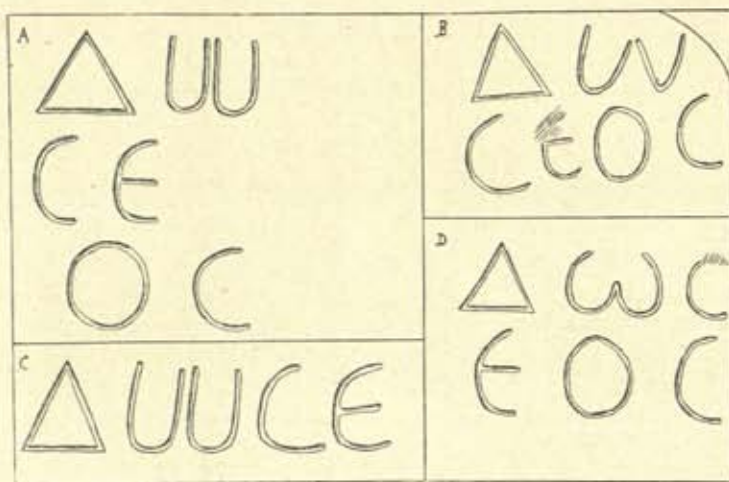 A
ΔѠ
ϹΕ
ΟϹ
B
ΔѠ
ϹΕΟϹ
C
ΔѠϹΕ
D
ΔѠϹ
ΕΟϹ